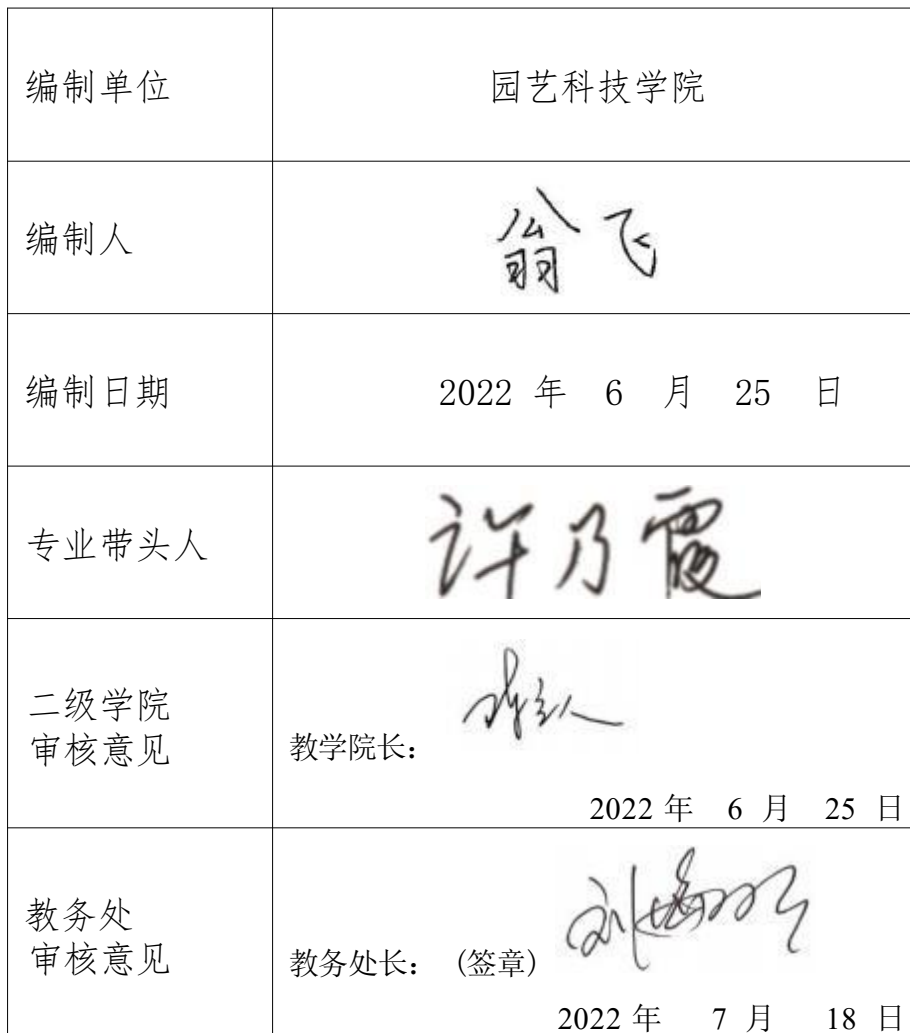 编制单位
园艺科技学院
编制人
翁飞
编制日期
2022 年 6 月 25 日
专业带头人
许乃霞
二级学院
审核意见
教学院长：
2022 年 6 月 25 日
教务处
审核意见
教务处长： (签章)
2022 年 7 月 18 日